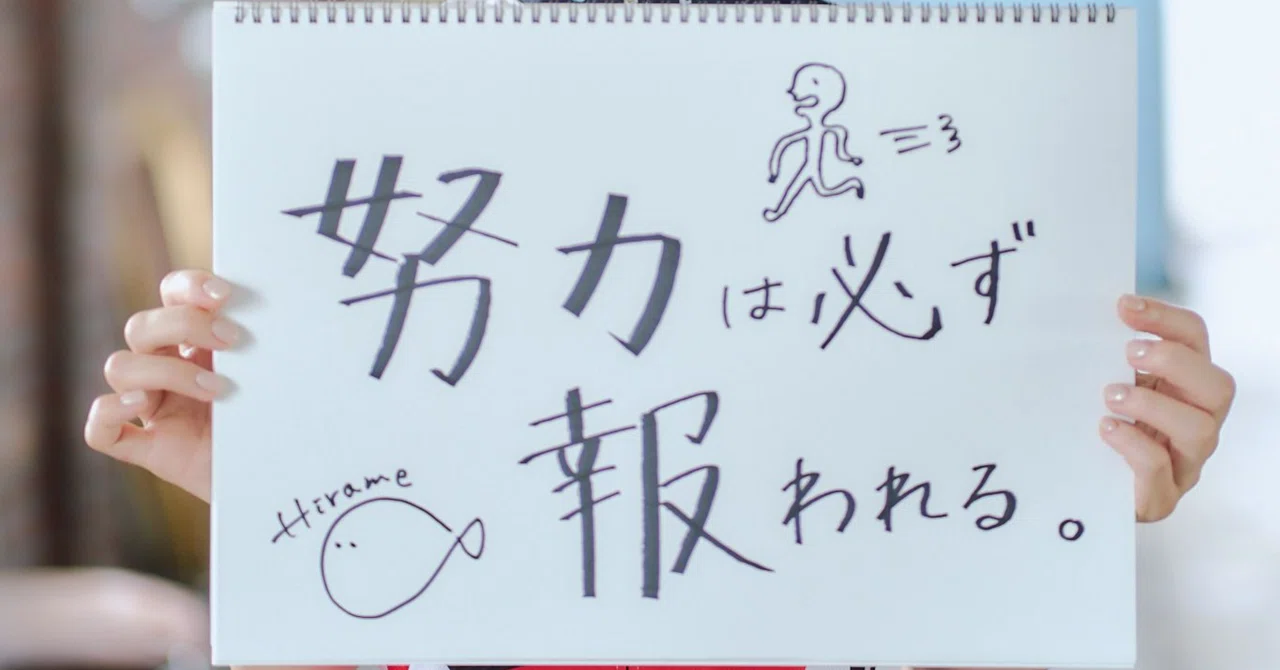 努力は必ず
報われる。
Hirame